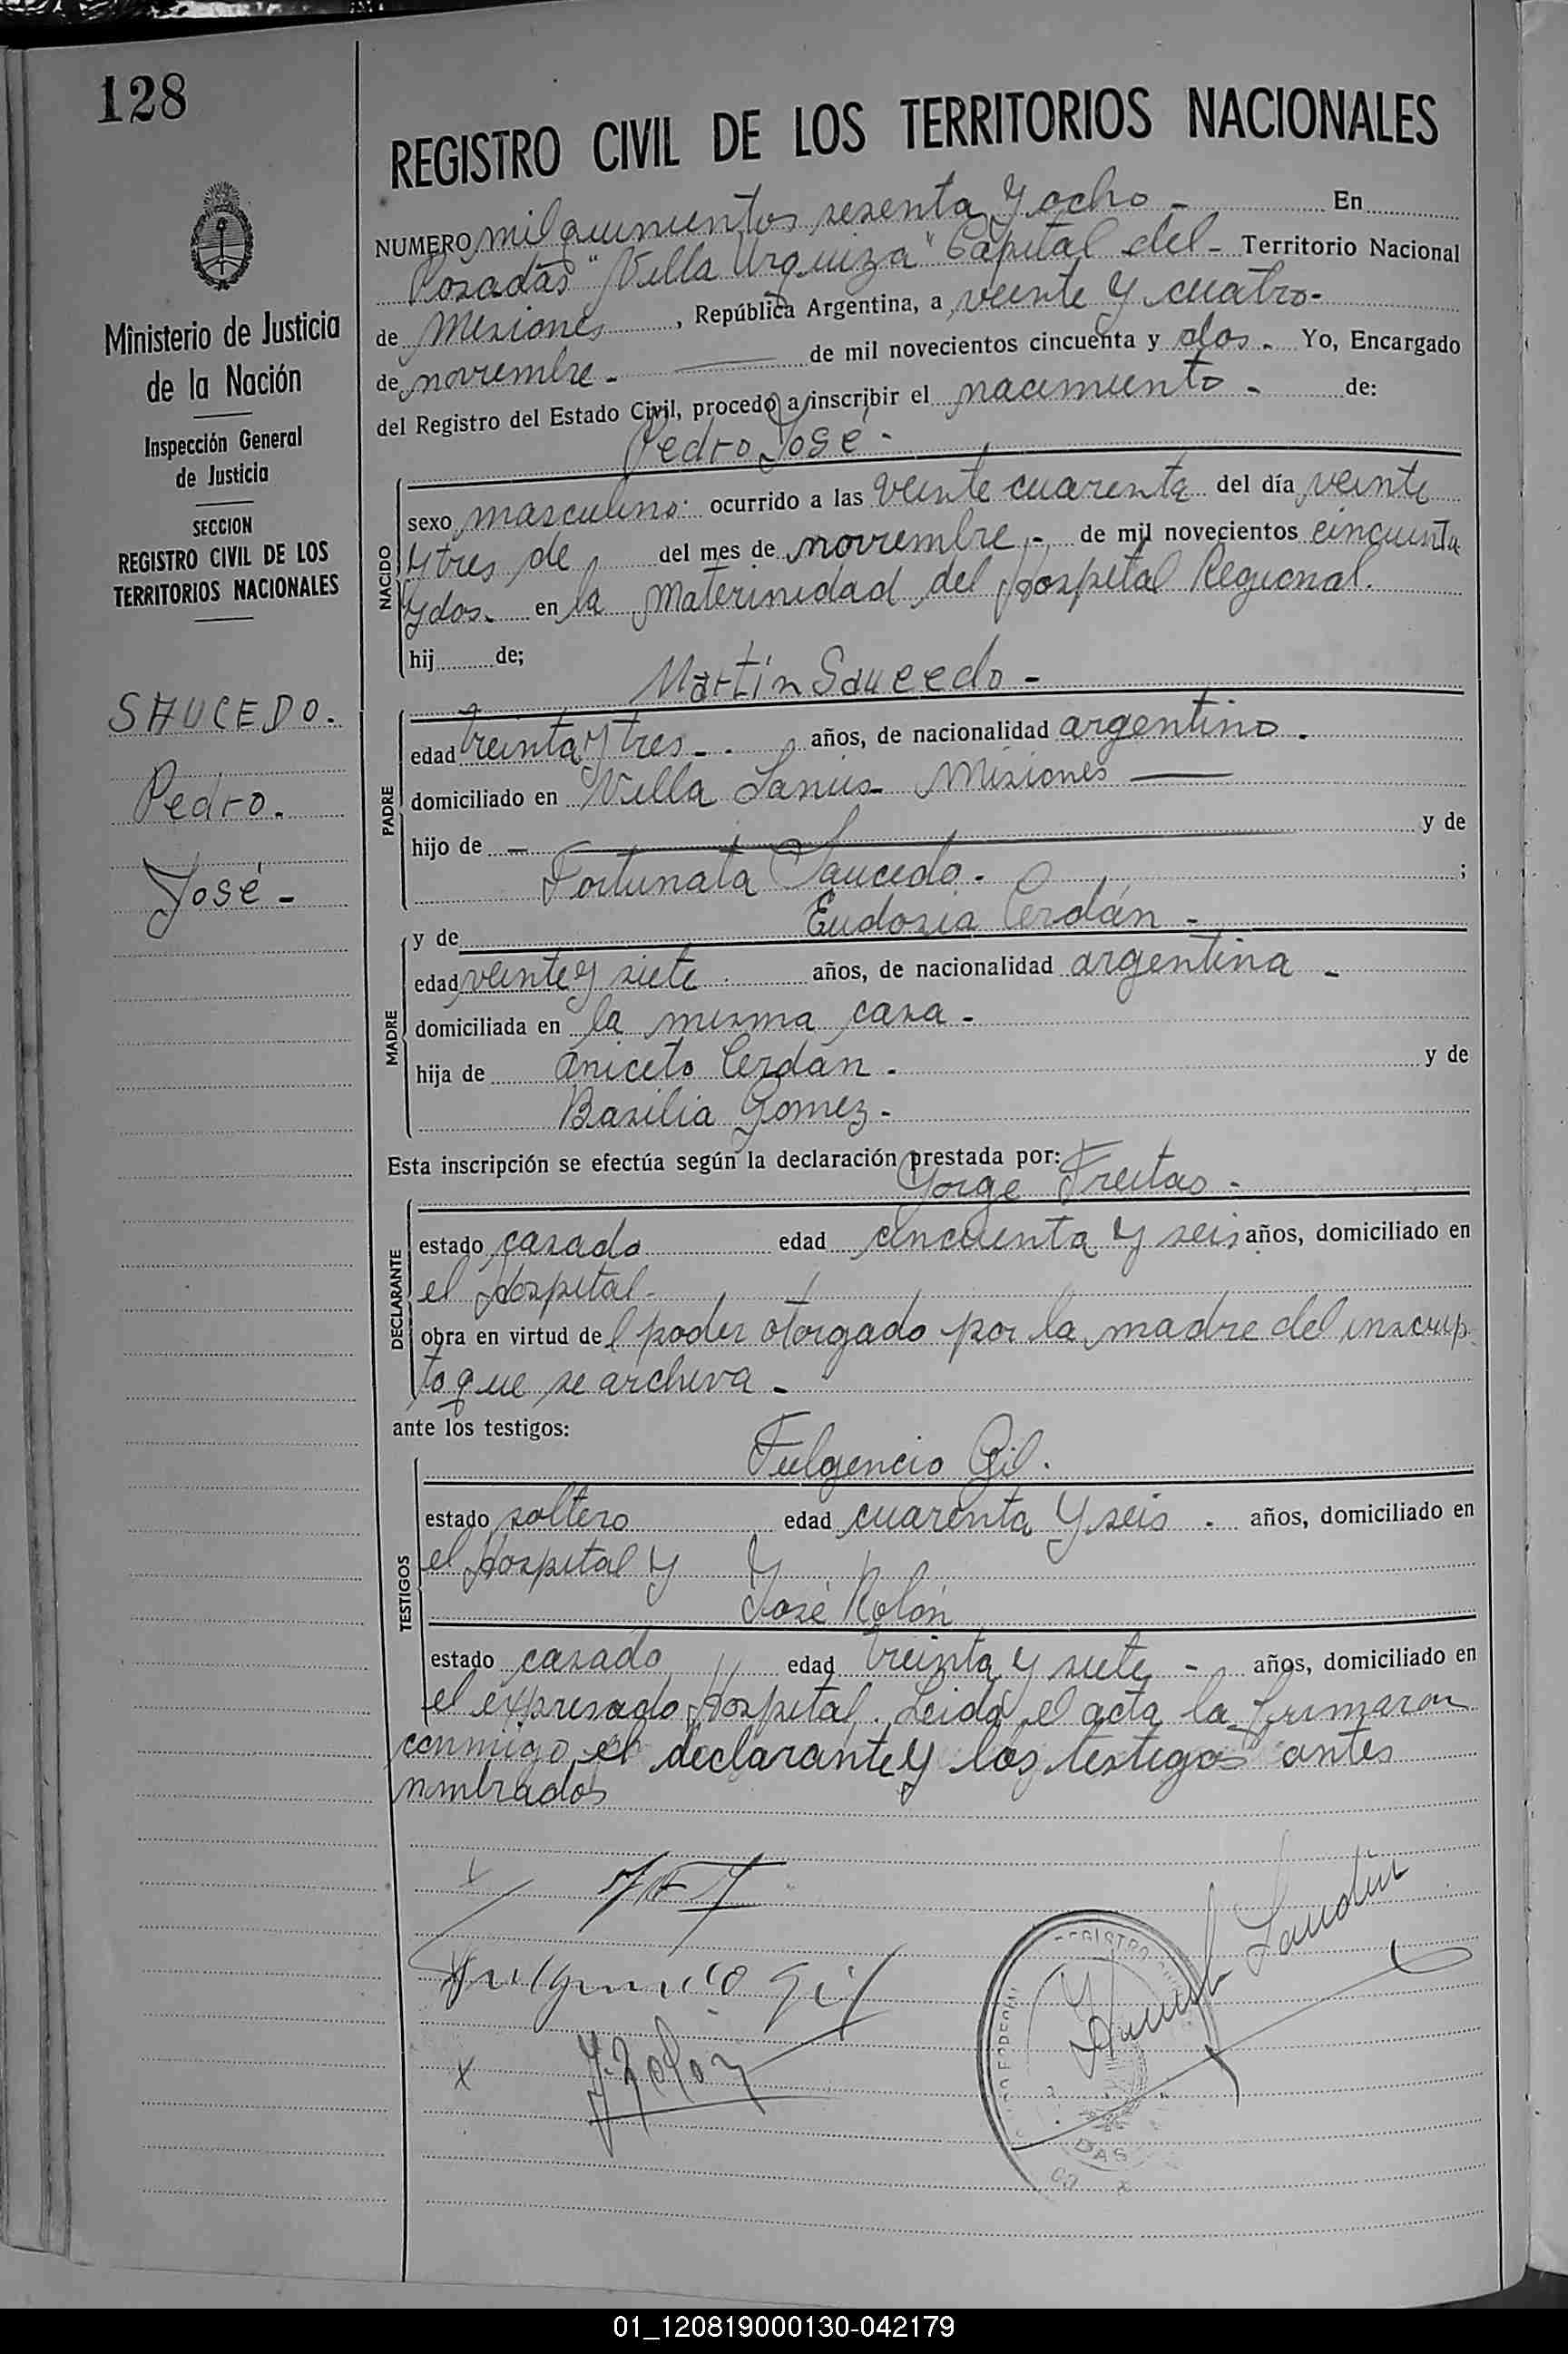 128
Ministerio de Justicia
de la Nación
Inspección General
de Justicia
SECCION
REGISTRO CIVIL DE LOS
TERRITORIOS NACIONALES
SAUCEDO.
Pedro.
José -
REGISTRO CIVIL DE LOS TERRITORIOS NACIONALES
NUMERO mil quinientos sesenta y ocho - En
Posadas "Villa Urquiza" Capital del - Territorio Nacional
de Misiones, República Argentina, a veinte y cuatro -
de noviembre - de mil novecientos cincuenta y dos - Yo, Encargado
del Registro del Estado Civil, procedo a inscribir el nacimiento - de:
Pedro José -
NACIDO
sexo masculino ocurrido a las veinte cuarenta del día veinte
y tres de del mes de noviembre - de mil novecientos cincuenta
y dos. en la Materinidad del Hospital Regional.
hij de;
Martín Saucedo -
PADRE
edad treinta y tres - años, de nacionalidad argentino.
domiciliado en Villa Lanús - Misiones
hijo de - y de
Fortunata Saucedo. ;
y de Eudosia Cerdán -
MADRE
edad veinte y siete años, de nacionalidad argentina -
domiciliada en la misma casa -
hija de Aniceto Cerdán. y de
Basilia Gomez -
Esta inscripción se efectúa según la declaración prestada por:
Jorge Freitas -
DECLARANTE
estado casado edad cincuenta y seis años, domiciliado en
el Hospital -
obra en virtud del poder otorgado por la madre del inscrip
to que se archiva -
ante los testigos:
Fulgencio Gil.
TESTIGOS
estado soltero edad cuarenta y seis - años, domiciliado en
el Hospital y
José Rolón
estado casado edad treinta y siete - años, domiciliado en
el expresado Hospital. Leida el acta la firmaron
conmigo el declarante y los testigos antes
nmbrados
Fulgencio Gil
J. Rolon
REGISTRO
01_120819000130-042179